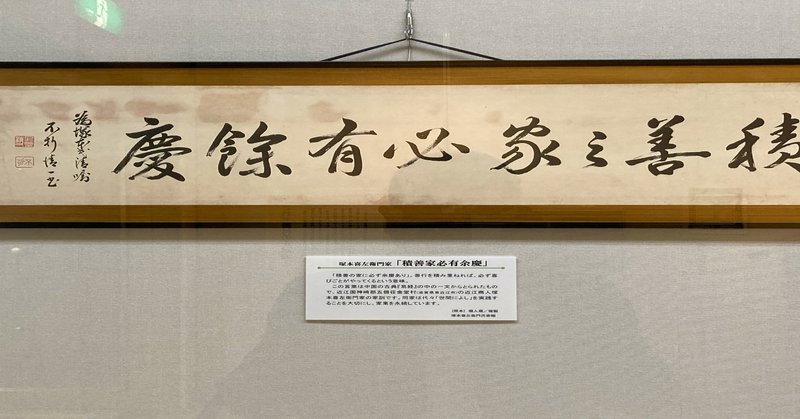 積善之家必有餘慶
塚本喜左衛門家「積善家必有余慶」
「積善の家に必ず余慶あり」。善行を積み重ねれば、必ず喜
びごとがやってくるという意味。
この言葉は中国の古典『易経』の中の一文からとられたもの
で、近江国神崎郡五個荘金堂村(滋賀県東近江市)の近江商人塚
本喜左衛門家の家訓です。同家は代々「世間によし」を実践す
ることを大切にし、家業を永続しています。
塚本喜左衛門氏寄贈